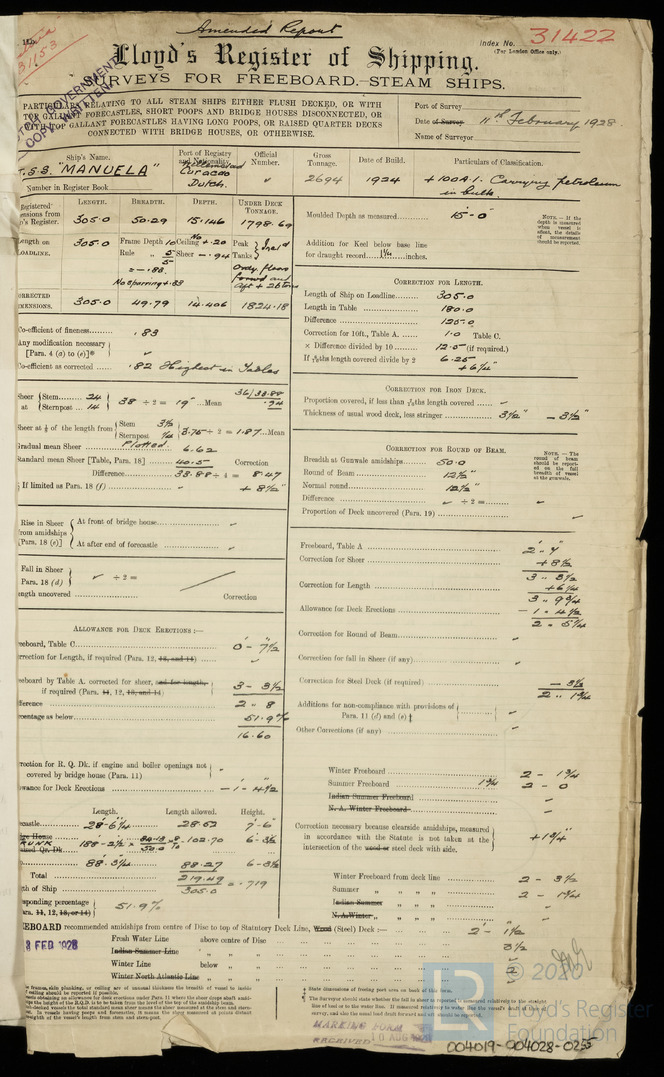 Amended Report
Index No. 31422
(For London Office only.)
Lloyd's Register of Shipping.
SURVEYS FOR FREEBOARD.—STEAM SHIPS.
PARTICULARS RELATING TO ALL STEAM SHIPS EITHER FLUSH DECKED, OR WITH
TOP GALLANT FORECASTLES, SHORT POOPS AND BRIDGE HOUSES DISCONNECTED, OR
WITH TOP GALLANT FORECASTLES HAVING LONG POOPS, OR RAISED QUARTER DECKS
CONNECTED WITH BRIDGE HOUSES, OR OTHERWISE.
Port of Survey
Date of Survey 11th February 1928.
Name of Surveyor
Ship's Name.
T.S.S. "MANUELA"
Number in Register Book
Port of Registry and Nationality.
Willemstad
Curacao
Dutch.
Official Number.
"
Gross Tonnage.
2694
Date of Build.
1924
Particulars of Classification.
+100A.1. Carrying petroleum
in bulk.
LENGTH. BREADTH. DEPTH. UNDER DECK TONNAGE.
305.0 50.29 15.146 1798.69
305.0
Frame Depth 10 Ceiling No +.20
Rule " 5 Sheer — .94
5
= -.83
No sparring +.33
Peak Tanks
Only floors
forward and
aft + 26 tons
305.0 49.79 14.406 1824.18
Moulded Depth as measured 15-0
Addition for Keel below base line
for draught record 1 1/4 inches.
NOTE.—If the depth is measured when vessel is afloat, the details of measurement should be reported.
CORRECTION FOR LENGTH.
Length of Ship on Loadline 305.0
Length in Table 180.0
Difference 125.0
Correction for 10ft., Table A. 1.0 Table C.
× Difference divided by 10 12.5 (if required.)
If 6/10ths length covered divide by 2 6.25
+6 1/4"
Co-efficient of fineness .83
Any modification necessary
[Para. 4 (a) to (e)]*
Co-efficient as corrected .82 Highest in Tables
CORRECTION FOR IRON DECK.
Proportion covered, if less than 7/10ths length covered
Thickness of usual wood deck, less stringer 3 1/2" — 3 1/2"
Sheer at Stem 24
Sternpost 14
38 ÷ 2 = 19" Mean
36/33.88
.94
Sheer at 1/8 of the length from Stem
Sternpost
3.75 ÷ 2 = 1.87 Mean
Gradual mean Sheer Plotted 6.62
Standard mean Sheer [Table, Para. 18] 40.5
Correction
Difference 33.88 ÷ 4 = 8.47
If limited as Para. 18 (f) + 8 1/2"
CORRECTION FOR ROUND OF BEAM.
Breadth at Gunwale amidships 50.0
Round of Beam 12 1/2"
Normal round 12 1/2"
Difference ÷ 2 =
Proportion of Deck uncovered (Para. 19)
NOTE.—The round of beam should be reported on the full breadth of vessel at the gunwale.
Rise in Sheer from amidships [Para. 18 (e)]
At front of bridge house
At after end of forecastle
Fall in Sheer
Para. 18 (d) ÷ 2 =
Length uncovered Correction
Freeboard, Table A 2 " 7
Correction for Sheer + 8 1/2
3 " 3 1/2
Correction for Length + 6 1/4
3 " 9 3/4
Allowance for Deck Erections — 1 " 4 1/2
2 " 5 1/4
Correction for Round of Beam
Correction for fall in Sheer (if any)
Correction for Steel Deck (if required) — 3 1/2
2 " 1 3/4
Additions for non-compliance with provisions of
Para. 11 (d) and (e) †
Other Corrections (if any)
ALLOWANCE FOR DECK ERECTIONS:—
Freeboard, Table C 0 - 7 1/2
Correction for Length, if required (Para. 12, 13, and 14)
Freeboard by Table A. corrected for sheer, and for length,
if required (Para. 11, 12, 13, and 14) 3 - 3 1/2
Difference 2 " 8
Percentage as below 51.9%
16.60
Correction for R. Q. Dk. if engine and boiler openings not
covered by bridge house (Para. 11)
Allowance for Deck Erections — 1 - 4 1/2
Length. Length allowed. Height.
28'-6 1/4" 28.52 7'-6"
TRUNK 188-2 1/2 102.70 6'-3 1/2
88'.3 1/4 88.27 6-3 1/2
Total 219.49
Length of Ship 305.0 = .719
Corresponding percentage
(Para. 11, 12, 13, or 14) 51.9%
Winter Freeboard 2 - 1 3/4
Summer Freeboard 1 3/4 2 - 0
Indian Summer Freeboard
N. A. Winter Freeboard
Correction necessary because clearside amidships, measured
in accordance with the Statute is not taken at the
intersection of the wood or steel deck with side. + 1 3/4"
Winter Freeboard from deck line 2 - 3 1/2
Summer " " " " 2 - 1 3/4
Indian Summer " " " "
N.A. Winter " " " "
FREEBOARD recommended amidships from centre of Disc to top of Statutory Deck Line, Wood (Steel) Deck:— 2' - 1 1/2
Fresh Water Line above centre of Disc 3 1/2
Indian Summer Line " "
Winter Line below "
Winter North Atlantic Line " "
8 FEB 1928
MARKING FORM
RECEIVED
© 2020
Lloyd's Register
Foundation
004019-004028-0255